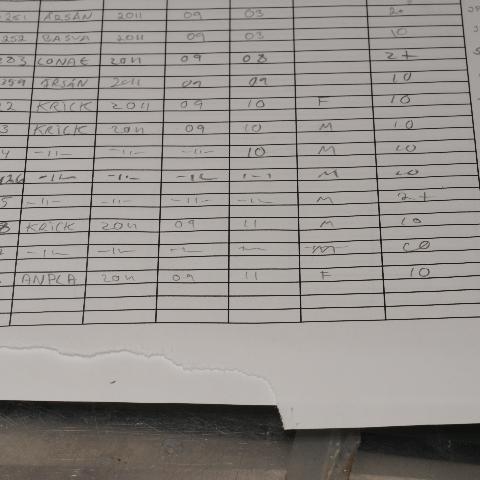 251 ARSAN 2011 09 03 2+
252 BASVA 2011 09 03 10
283 CONAE 2011 09 08 2+
259 ARSAN 2011 09 09 10
2 KRICK 2011 09 10 F 10
3 KRICK 2011 09 10 M 10
4 -11- -11- -11- 10 M 10
-11- -11- -11- -11- M 10
5 -11- -11- -11- -11- M 2+
8 KRICK 2011 09 11 M 10
-11- -11- -11- -11- M 10
ANPLA 2011 09 11 F 10